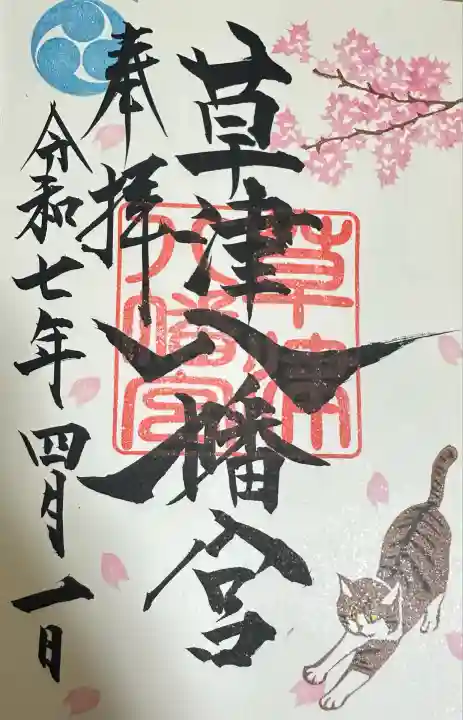 奉拝
草津八幡宮
令和七年四月一日
草津
八幡宮